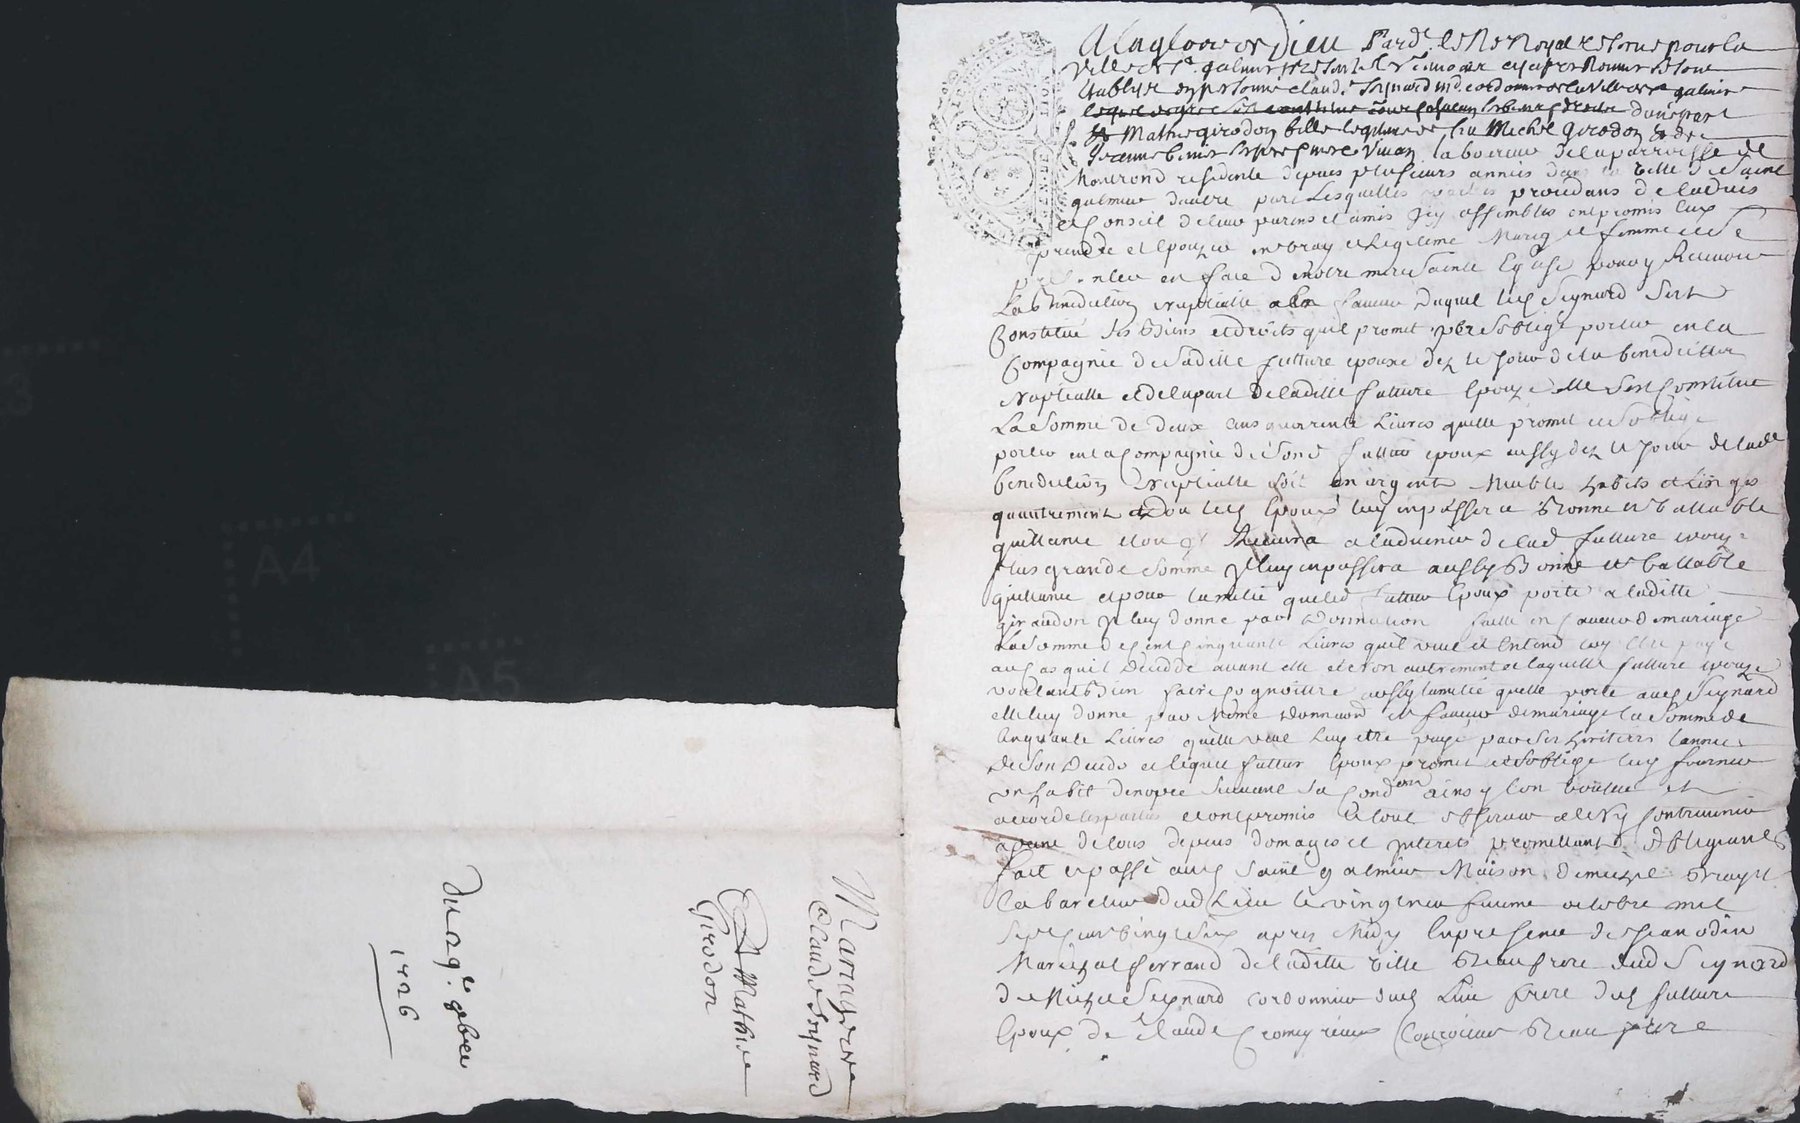 A la gloire de Dieu Pard. le No Royal reservé pour la
ville de St galmier
établys en personne claude seynard md cordonnier de la ville de St galmier
d'une part
Et Mathie girodon fille legitime de feu Michel girodon & de
laboureur de la parroisse de
Montrond residente depuis plusieurs années dans la ville de Saint
galmier d'autre part Lesquelles parties procedans de ladvis
et Conseil de leur parens et amis icy assemblés ont promis eux
prendre et Epouzer en vray et Legitime Mary et femme et se
presenter en face de notre mere Sainte Eglise pour y Recevoir
La benediction nuptialle a la faveur duquel led Seynard sest
Constitué ses Biens et droits quil promet et soblige porter en la
Compagnie de sa ditte future epouze dez le jour de la benediction
Nuptialle et de la part de la ditte future Epouze elle sest Constitué
La somme de deux cens quarente Livres quelle promet et soblige
porter en la Compagnie de sond futtur epoux aussy dez le jour de lade
benediction Nuptialle soit en argent Meubles habits et Linges
quautrement dou led Epoux luy en passera Bonne et Vallable
quittance et ou il Recevra a ladvenir de lad future epouze
plus grande somme il luy en passera aussy Bonne et Vallable
quittance et pour lamitié que led futtur Epoux porte a la ditte
giraudon il luy donne par donnation faitte en faveur de mariage
La somme de cent cinquante Livres quil veut et Entend luy estre payé
au cas quil Decedde avant elle et non autrement et laquelle future epouze
voulant Bien faire Cognoittre aussy lamitié quelle porte aud Seynard
elle luy donne par Meme donnaon en faveur de mariage La somme de
Cinquante Livres quelle veut Luy etre payé par ses heritiers lannée
De son Deceds et lequel futtur Epoux promet et soblige luy fournir
un habit de nopce suivant sa Condon ainsy lon Voulu et
accordé les parties et ont promis le tout observer et ny Contrevenir
a peine de tous depens domages et Interets promettant Obligeant &
fait et passé aud Saint galmier Maison de michel
Cabaretier dud Lieu le vingtneufieme octobre mil
sept cens vingt six apres Midy En presence de Jean odin
Marechal ferrand de la ditte ville Beaufrere dud Seynard
de Michel Seynard cordonnier dud Lieu frere dud futture
Epoux de Claude Couroieur Beau pere
Mariage de
Claude Seynard
Et Mathie
Girodon
Du 29e 8bre
1726